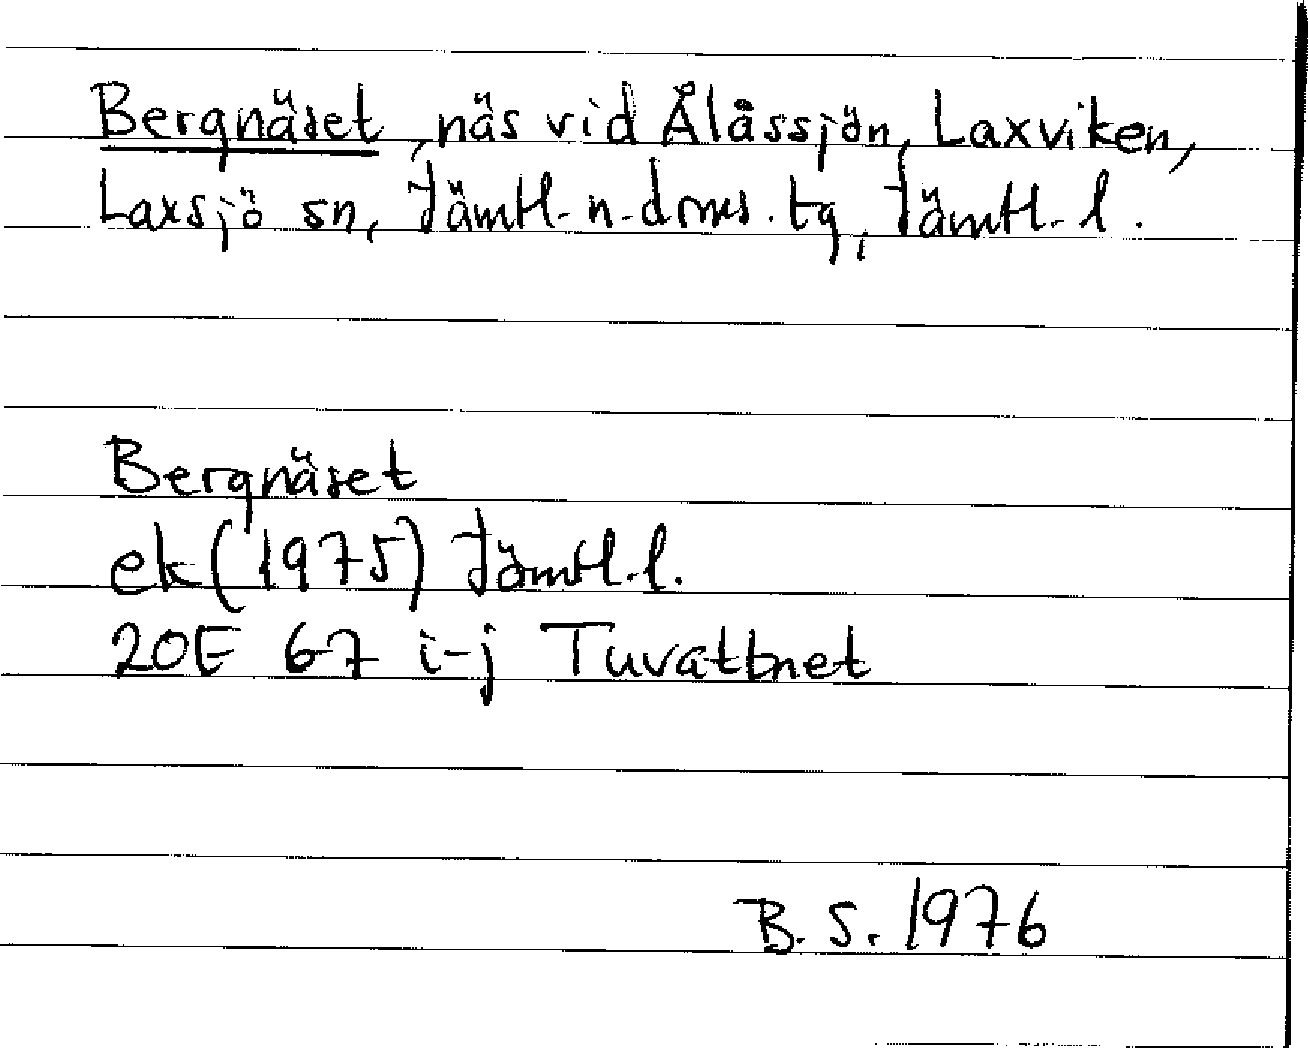 Bergnäset, näs vid Ålåssjön, Laxviken,
Laxsjö sn, Jämtl. n. dms. tg, Jämtl. l.
Bergnäset
ek (1975) Jämtl. l.
20E 67 i-j Tuvattnet
B. S. 1976